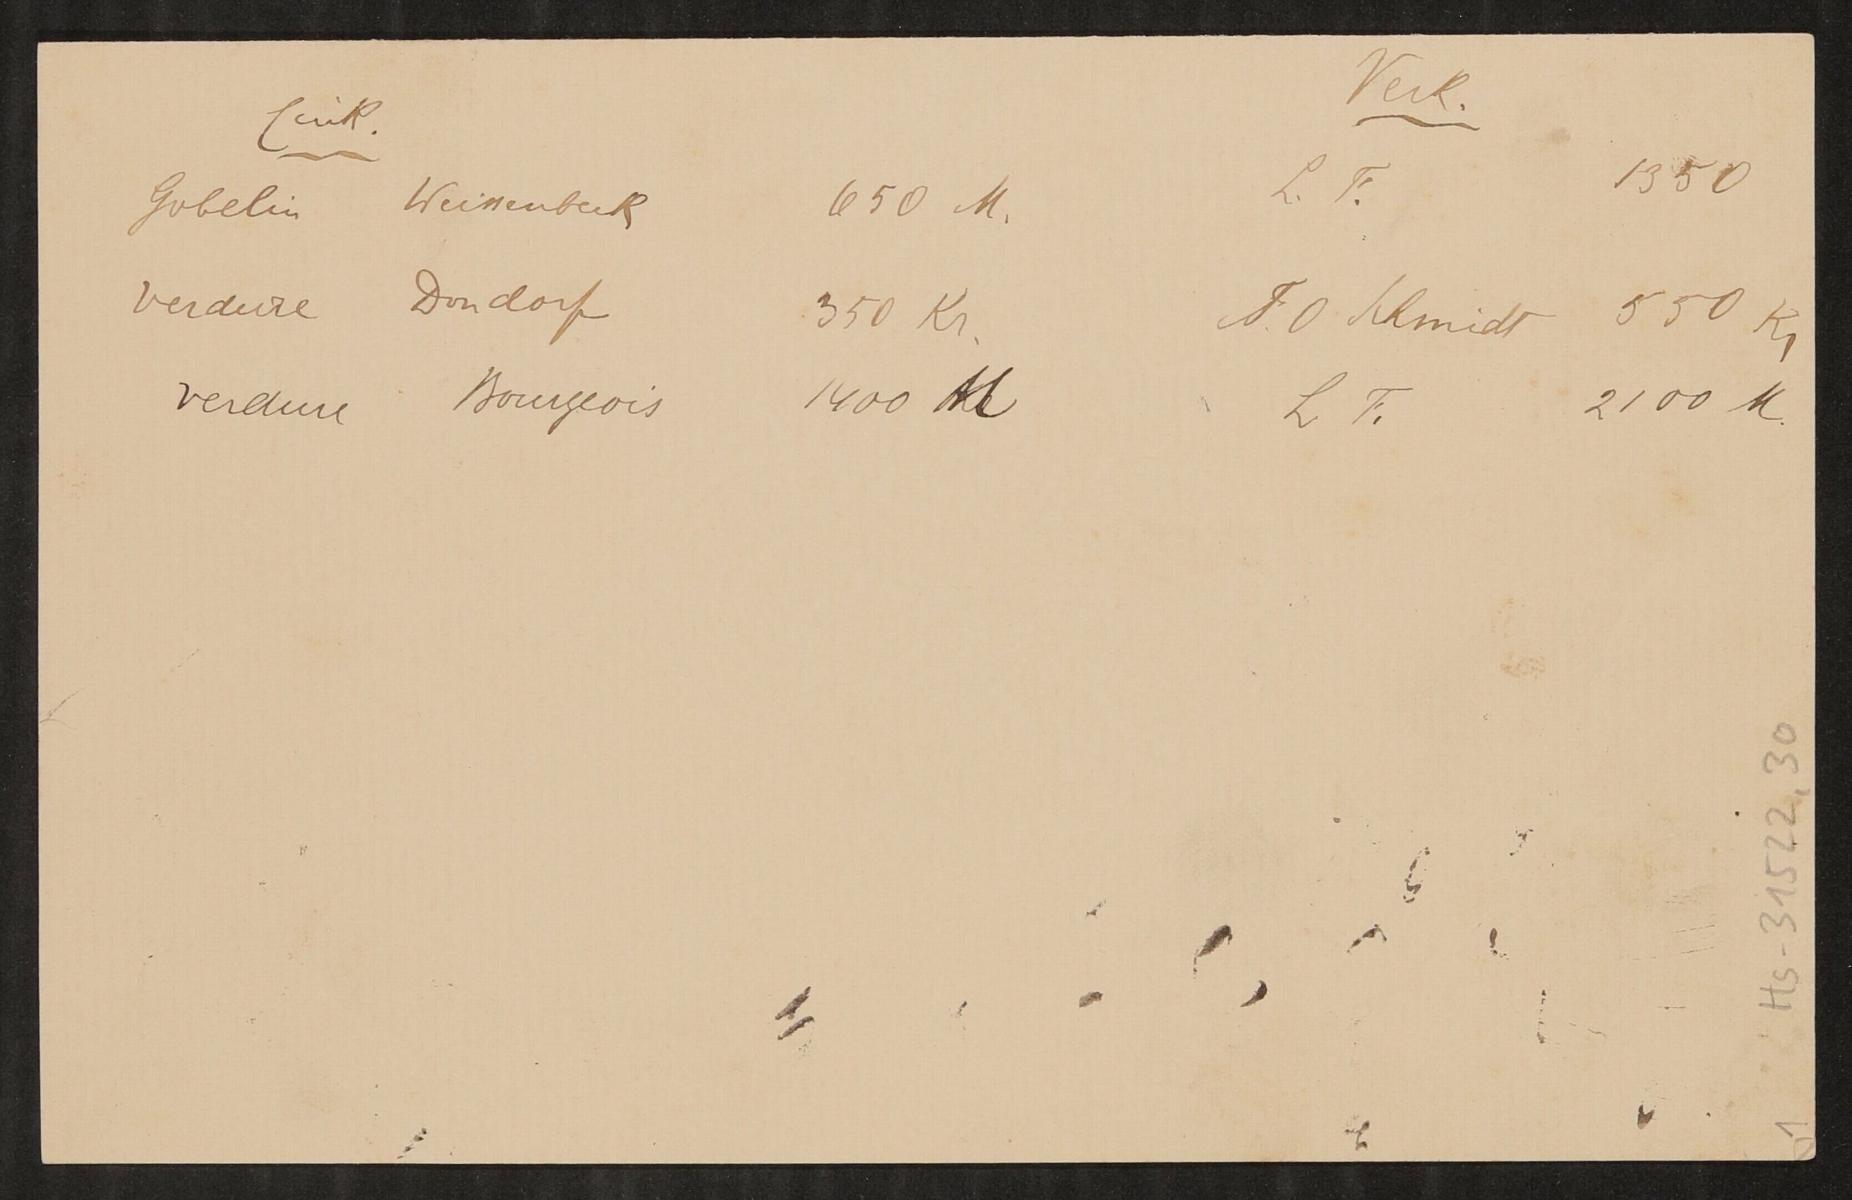 Eink. Verk.
Gobelin Weissenbeck 650 M. L. F. 1350
Verdure Dondorf 350 Kr. F. O Schmidt 550 Kr
Verdure Bourgeois 1400 M L F. 2100 M.
Hs-31522,30